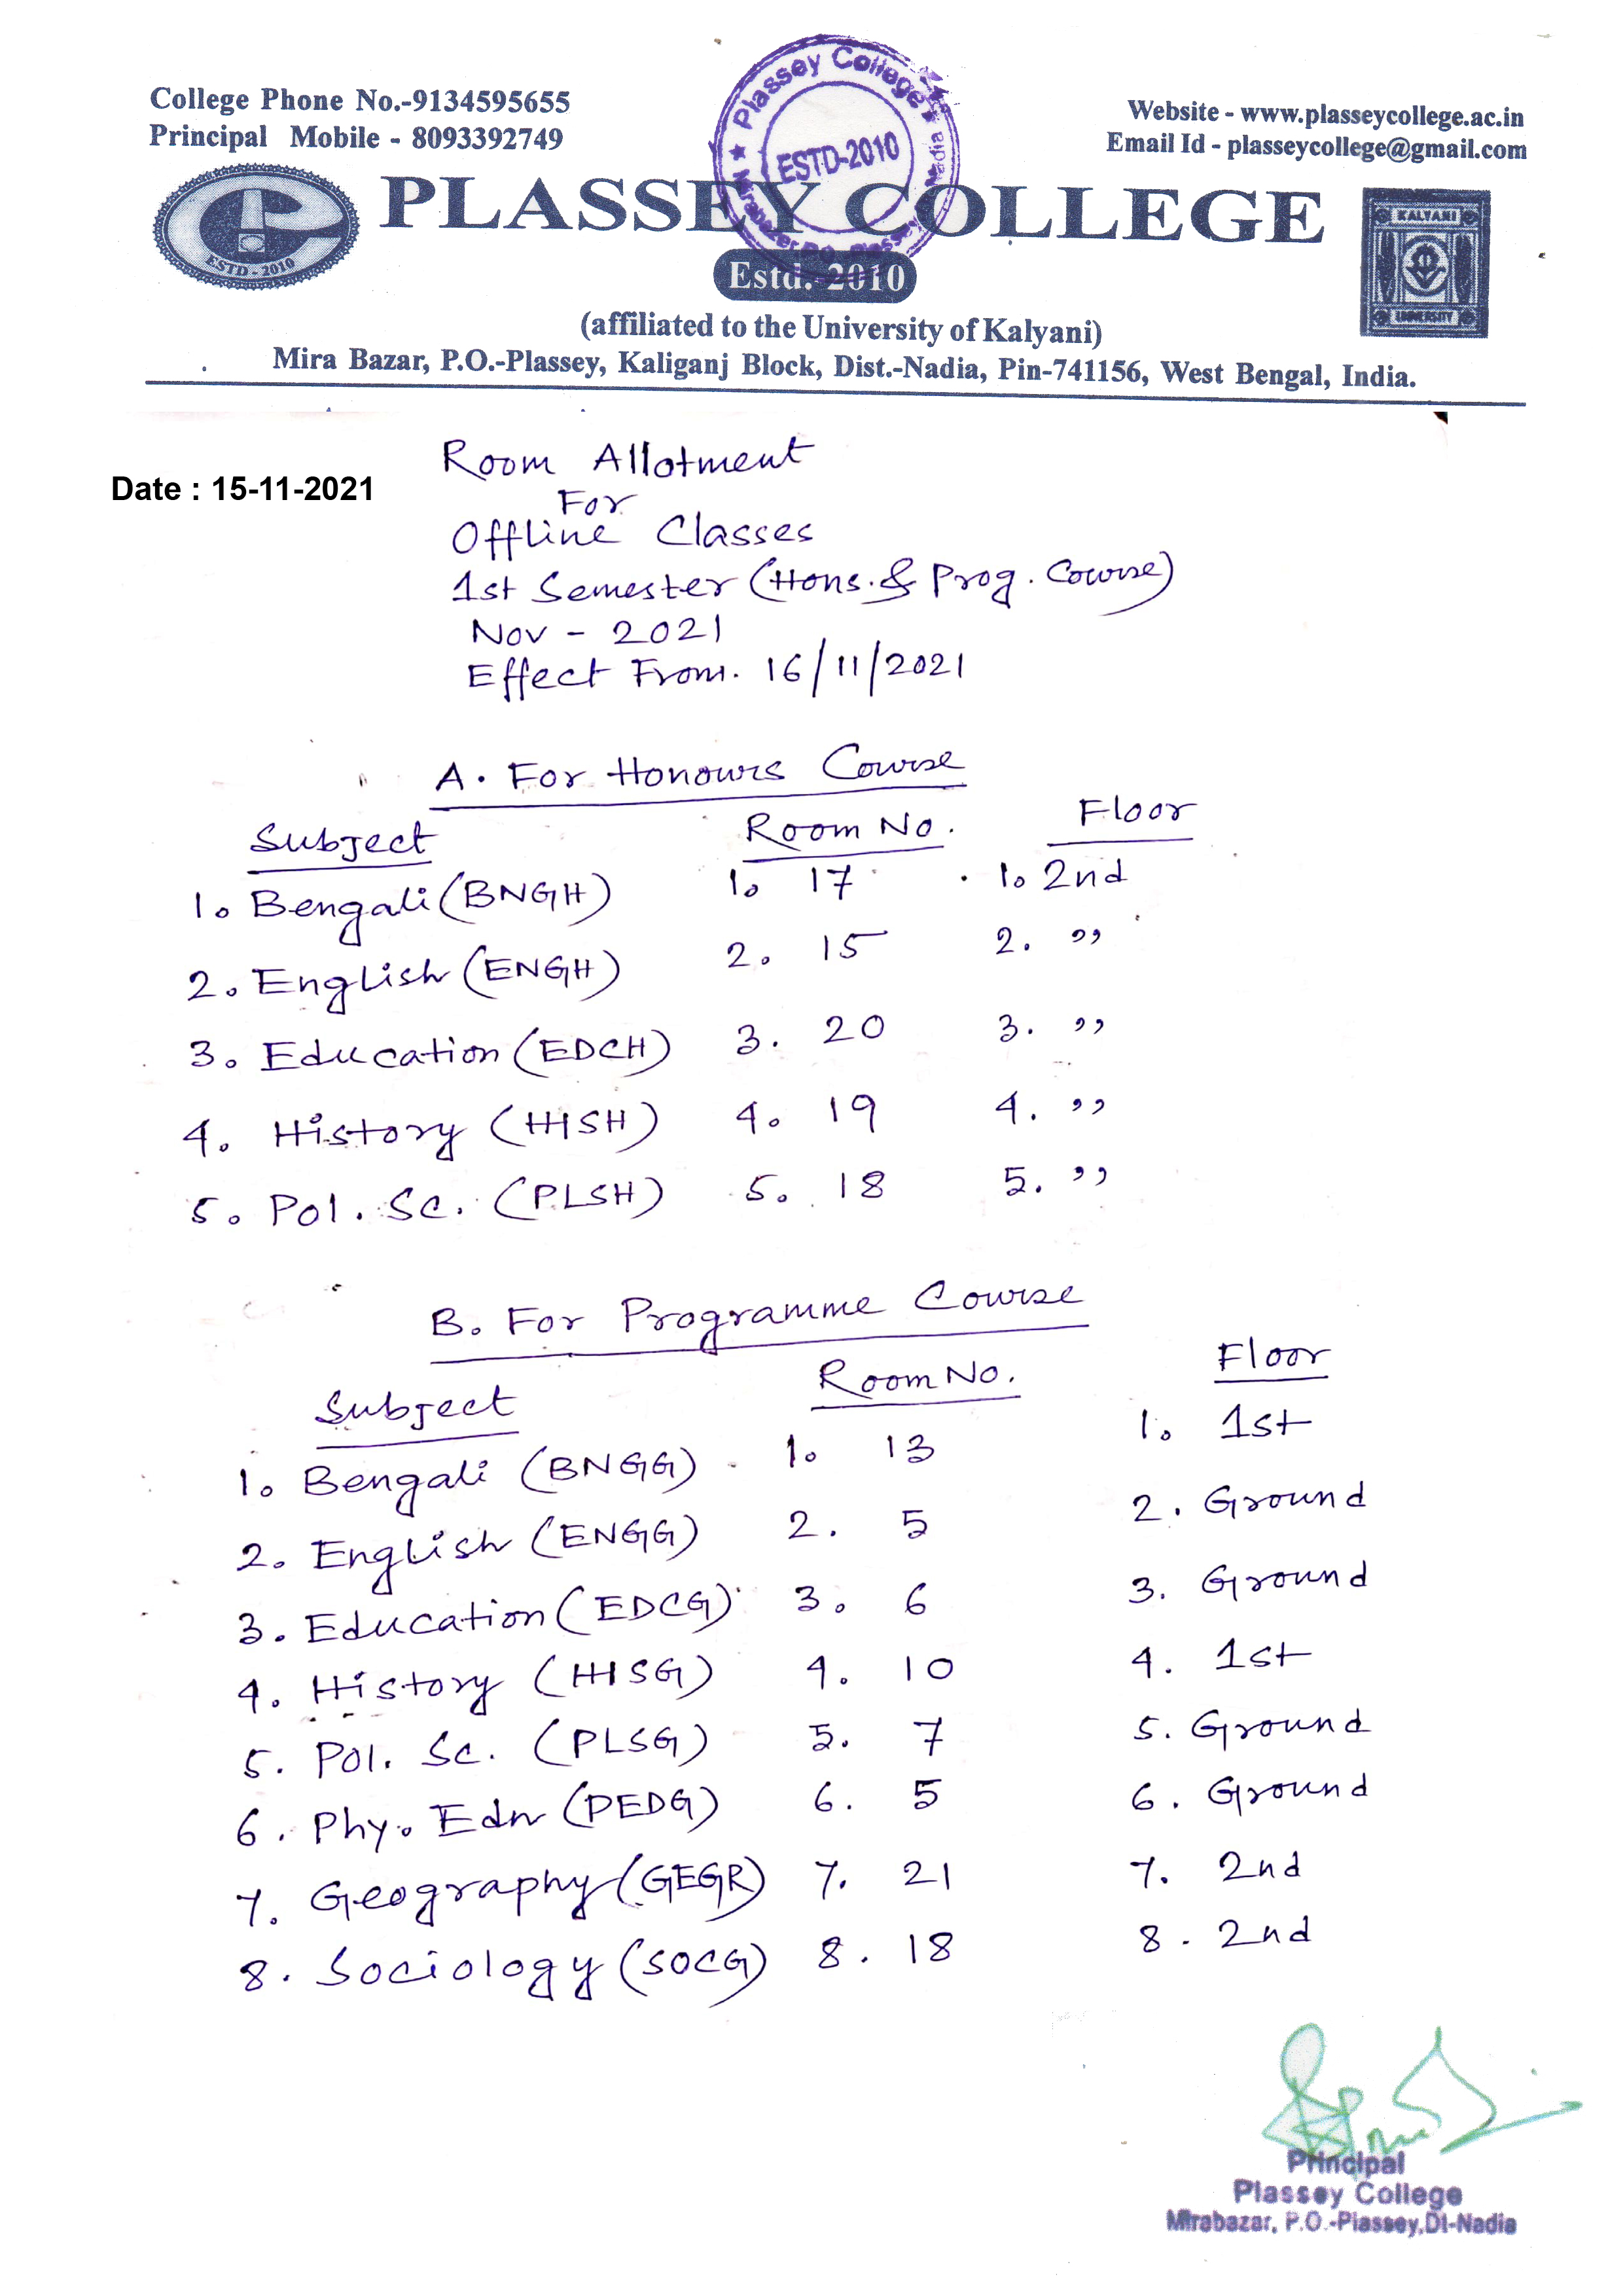 College Phone No.-9134595655
Principal Mobile - 8093392749
Website - www.plasseycollege.ac.in
Email Id - plasseycollege@gmail.com
★ Plassey College ★
ESTD-2010
Mirabazar, P.O.-Plassey, Nadia
ESTD - 2010
PLASSEY COLLEGE
KALYANI
UNIVERSITY
Estd. 2010
(affiliated to the University of Kalyani)
Mira Bazar, P.O.-Plassey, Kaliganj Block, Dist.-Nadia, Pin-741156, West Bengal, India.
Room Allotment
Date : 15-11-2021
For
Offline Classes
1st Semester (Hons. & Prog. Course)
Nov - 2021
Effect From. 16/11/2021
A. For Honours Course
Subject Room No. Floor
1. Bengali (BNGH) 1. 17 1. 2nd
2. English (ENGH) 2. 15 2. ,,
3. Education (EDCH) 3. 20 3. ,,
4. History (HISH) 4. 19 4. ,,
5. Pol. Sc. (PLSH) 5. 18 5. ,,
B. For Programme Course
Subject Room No. Floor
1. Bengali (BNGG) 1. 13 1. 1st
2. English (ENGG) 2. 5 2. Ground
3. Education (EDCG) 3. 6 3. Ground
4. History (HISG) 4. 10 4. 1st
5. Pol. Sc. (PLSG) 5. 7 5. Ground
6. Phy. Edn (PEDG) 6. 5 6. Ground
7. Geography (GEGR) 7. 21 7. 2nd
8. Sociology (SOCG) 8. 18 8. 2nd
Principal
Plassey College
Mirabazar, P.O.-Plassey, Dt-Nadia